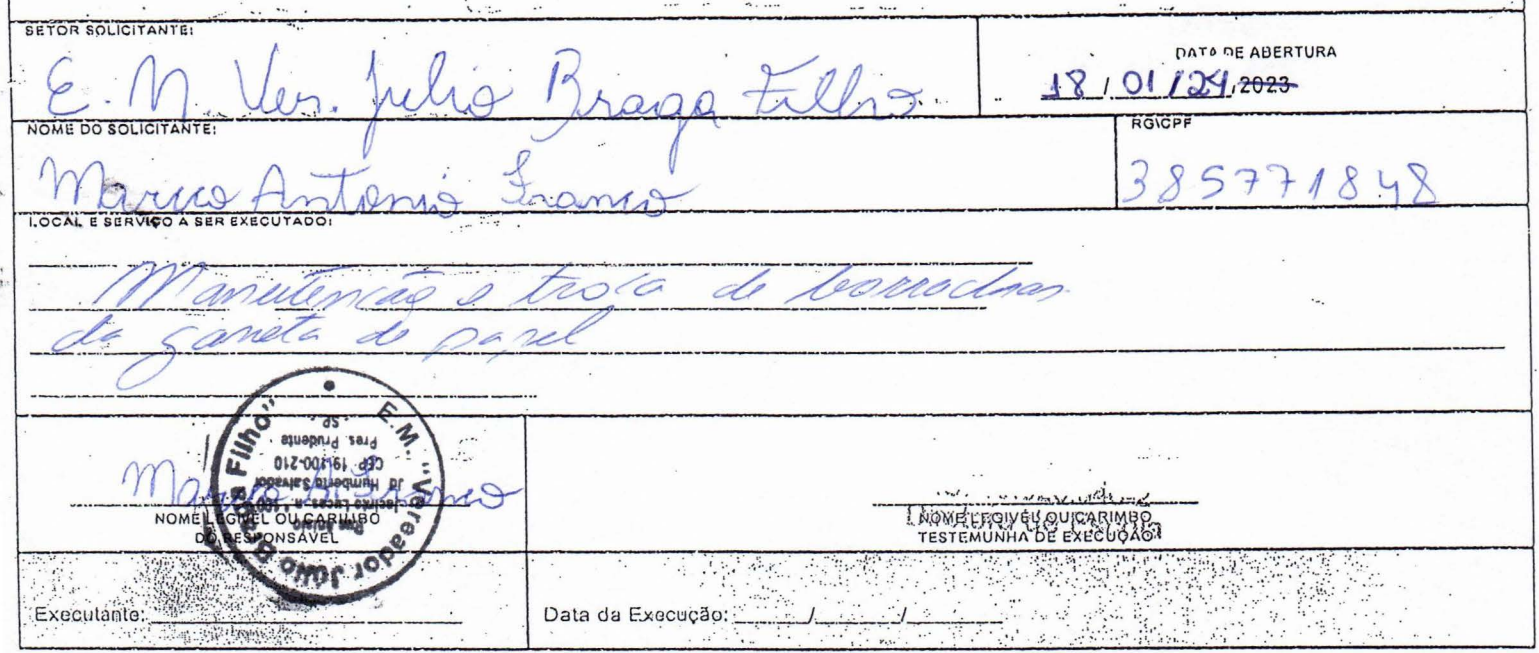 SETOR SOLICITANTE:
E. M. Ver. Julio Braga Filho
DATA DE ABERTURA
18 / 01 / 24, 2023
NOME DO SOLICITANTE:
Marco Antonio Franco
RG\CPF
385771848
LOCAL E SERVIÇO A SER EXECUTADO:
Manutenção e troca de borrachas
da gaveta de papel
E.M. "Vereador Júlio Braga Filho"
Jacinto Lucas, n.º 100
Jd Humberto Salvador
CEP 19.100-210
Pres. Prudente
SP
Marco A Franco
NOME LEGÍVEL OU CARIMBO
DO RESPONSÁVEL
NOME LEGÍVEL OU CARIMBO
TESTEMUNHA DE EXECUÇÃO
Executante:
Data da Execução: / /